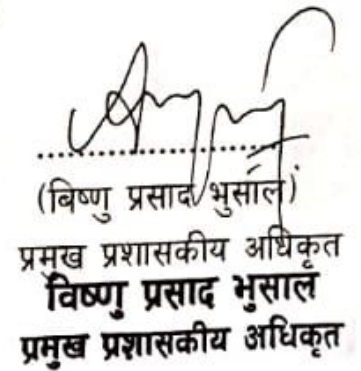 (बिष्णु प्रसाद भुसाल)
प्रमुख प्रशासकीय अधिकृत
विष्णु प्रसाद भुसाल
प्रमुख प्रशासकीय अधिकृत